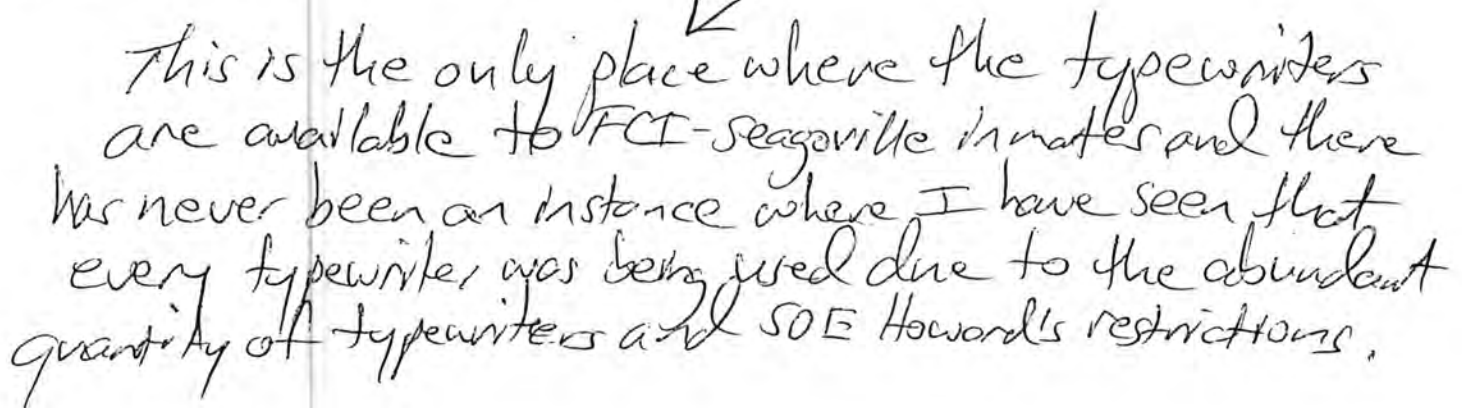 This is the only place where the typewriters
are available to FCI-Seagoville inmates and there
has never been an instance where I have seen that
every typewriter was being used due to the abundant
quantity of typewriters and SOE Howard's restrictions.